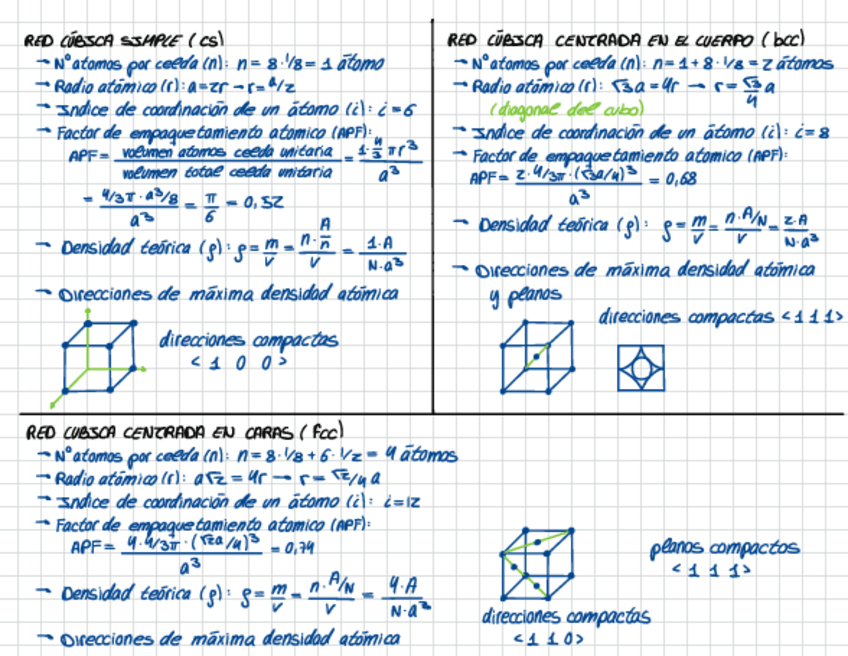 RED CÚBICA SIMPLE (cs)
→ Nº atomos por celda (n): n = 8 · 1/8 = 1 átomo
→ Radio atómico (r): a = 2r → r = a/2
→ Indice de coordinación de un átomo (i): i = 6
→ Factor de empaquetamiento atomico (APF):
APF = volumen atomos celda unitaria / volumen total celda unitaria = 1 · 4/3 π r³ / a³
= 4/3 π · a³/8 / a³ = π/6 = 0,52
→ Densidad teórica (ρ): ρ = m/V = n · A/n / V = 1·A / N·a³
→ Direcciones de máxima densidad atómica
direcciones compactas
< 1 0 0 >
RED CÚBICA CENTRADA EN EL CUERPO (bcc)
→ Nº atomos por celda (n): n = 1 + 8 · 1/8 = 2 átomos
→ Radio atómico (r): √3 a = 4r → r = √3/4 a
(diagonal del cubo)
→ Indice de coordinación de un átomo (i): i = 8
→ Factor de empaquetamiento atomico (APF):
APF = 2 · 4/3π · (√3a/4)³ / a³ = 0,68
→ Densidad teórica (ρ): ρ = m/V = n · A/N / V = 2·A / N·a³
→ Direcciones de máxima densidad atómica
y planos
direcciones compactas < 1 1 1 >
RED CUBICA CENTRADA EN CARAS (fcc)
→ Nº atomos por celda (n): n = 8 · 1/8 + 6 · 1/2 = 4 átomos
→ Radio atómico (r): a√2 = 4r → r = √2/4 a
→ Indice de coordinación de un átomo (i): i = 12
→ Factor de empaquetamiento atomico (APF):
APF = 4 · 4/3π · (√2a/4)³ / a³ = 0,74
→ Densidad teórica (ρ): ρ = m/V = n · A/N / V = 4·A / N·a³
→ Direcciones de máxima densidad atómica
direcciones compactas
< 1 1 0 >
planos compactos
< 1 1 1 >